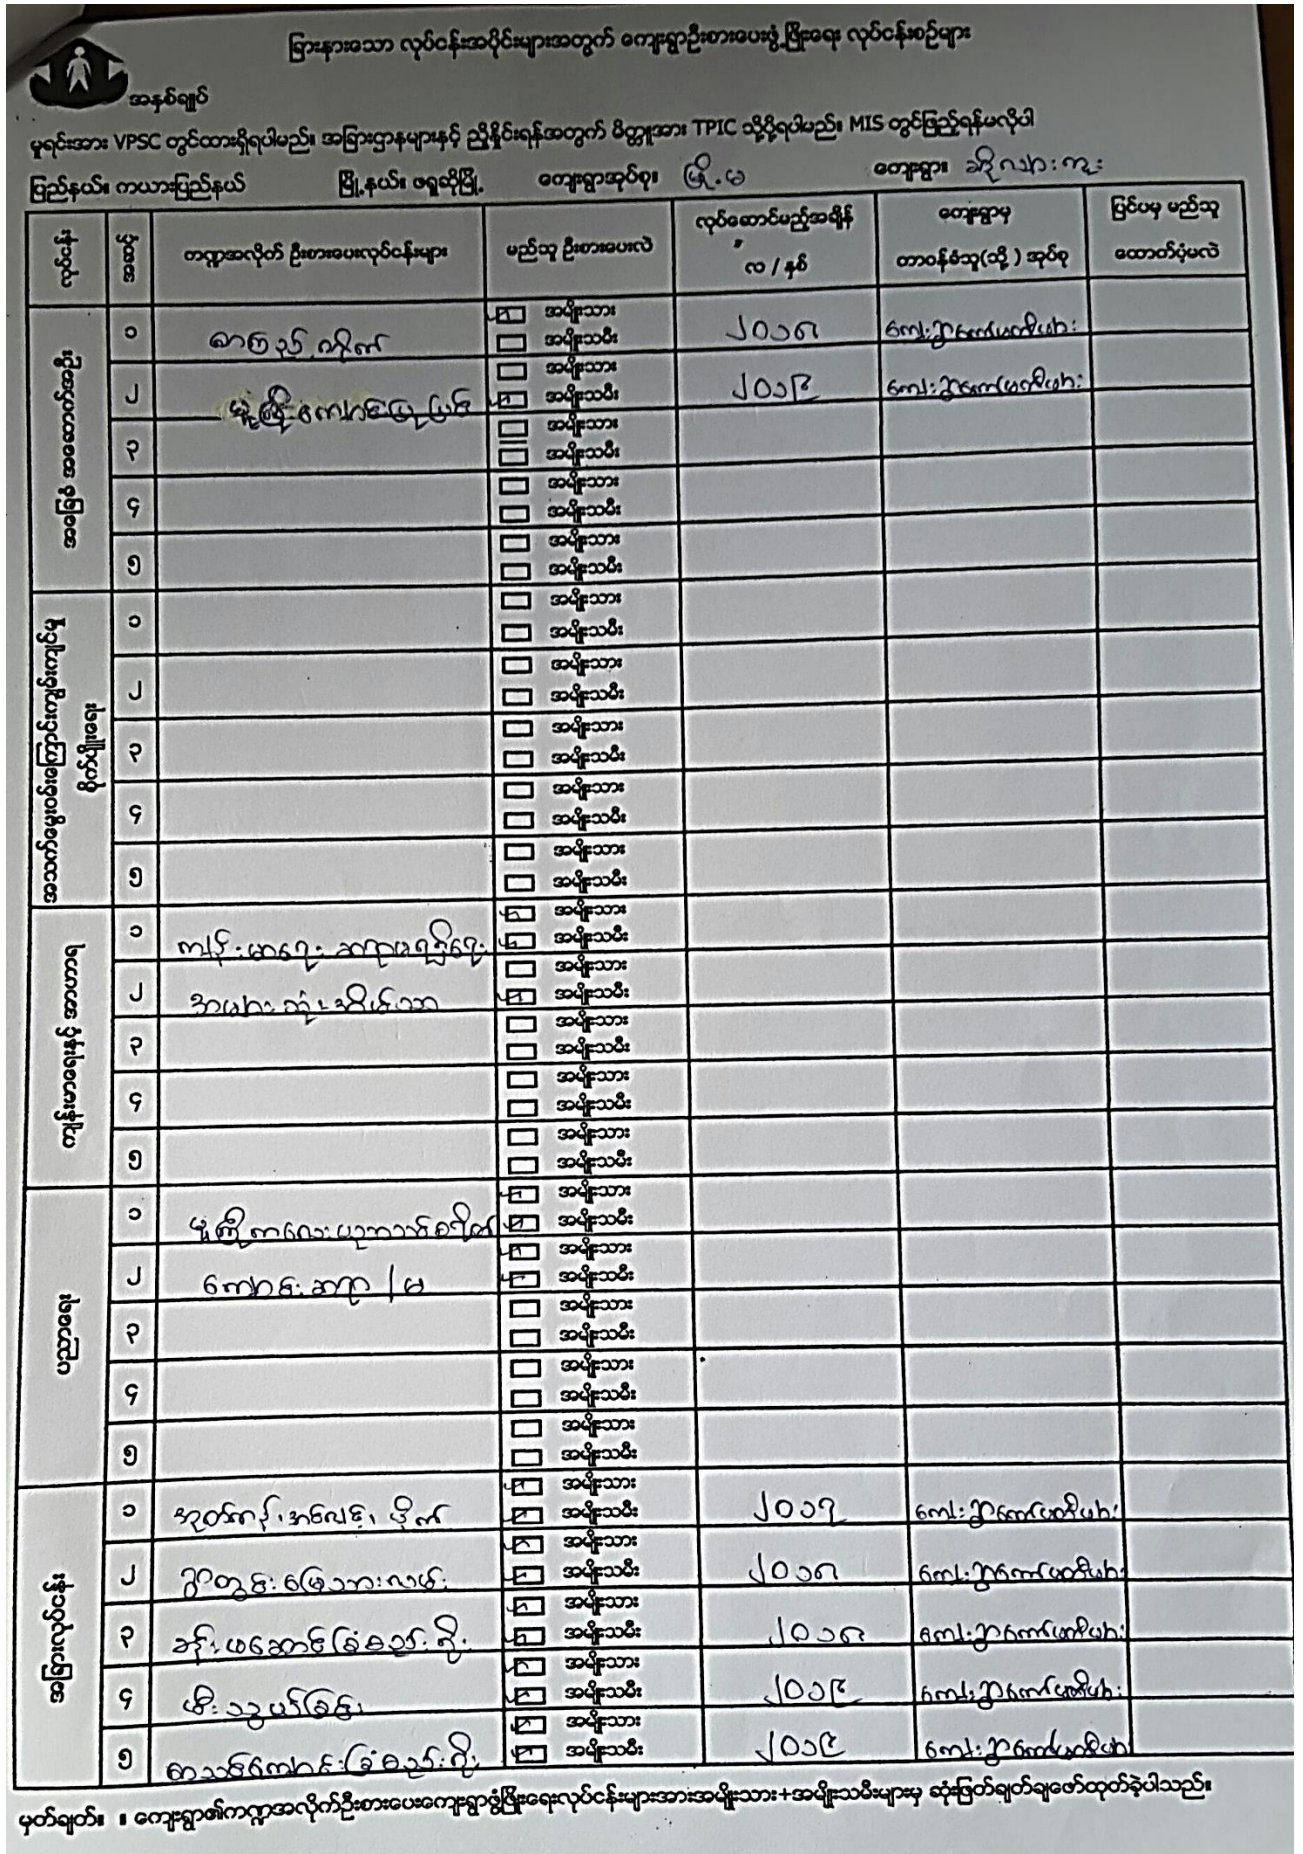 ခြားနားသော လုပ်ငန်းအပိုင်းများအတွက် ကျေးရွာဦးစားပေးဖွံ့ဖြိုးရေး လုပ်ငန်းစဉ်များ
အနှစ်ချုပ်
မူရင်းအား VPSC တွင်ထားရှိရပါမည်။ အခြားဌာနများနှင့် ညှိနှိုင်းရန်အတွက် မိတ္တူအား TPIC သို့ပို့ရပါမည်။ MIS တွင်ဖြည့်ရန်မလိုပါ
ပြည်နယ်။ ကယားပြည်နယ် မြို့နယ်။ ဖရူဆိုမြို့ ကျေးရွာအုပ်စု။ မြို့မ ကျေးရွာ။
လုပ်ငန်း အမှတ် ကဏ္ဍအလိုက် ဦးစားပေးလုပ်ငန်းများ မည်သူ ဦးစားပေးလဲ လုပ်ဆောင်မည့်အချိန် လ / နှစ် ကျေးရွာမှ တာဝန်ခံသူ(သို့) အုပ်စု ပြင်ပမှ မည်သူ ထောက်ပံ့မလဲ
၁ အမျိုးသား
အမျိုးသမီး ၂၀၁၈ ကျေးရွာကော်မတီများ
၂ အမျိုးသား
မူကြိုကျောင်းပြုပြင် အမျိုးသမီး ၂၀၁၉ ကျေးရွာကော်မတီများ
၃ အမျိုးသား
အမျိုးသမီး
၄ အမျိုးသား
အမျိုးသမီး
၅ အမျိုးသား
အမျိုးသမီး
၁ အမျိုးသား
အမျိုးသမီး
၂ အမျိုးသား
အမျိုးသမီး
၃ အမျိုးသား
အမျိုးသမီး
၄ အမျိုးသား
အမျိုးသမီး
၅ အမျိုးသား
အမျိုးသမီး
ကျန်းမာရေးစောင့်ရှောက်မှု
၁ အမျိုးသား
ကျန်းမာရေး ဆရာမရရှိရေး အမျိုးသမီး
၂ အမျိုးသား
အမျိုးသမီး
၃ အမျိုးသား
အမျိုးသမီး
၄ အမျိုးသား
အမျိုးသမီး
၅ အမျိုးသား
အမျိုးသမီး
ပညာရေး
၁ အမျိုးသား
မူကြိုကလေး အမျိုးသမီး
၂ အမျိုးသား
ကျောင်းဆရာ / မ အမျိုးသမီး
၃ အမျိုးသား
အမျိုးသမီး
၄ အမျိုးသား
အမျိုးသမီး
၅ အမျိုးသား
အမျိုးသမီး
အခြားလုပ်ငန်း
၁ အမျိုးသား
အမျိုးသမီး ၂၀၁၇ ကျေးရွာကော်မတီများ
၂ အမျိုးသား
ရွာတွင်းမြေသားလမ်း အမျိုးသမီး ၂၀၁၈ ကျေးရွာကော်မတီများ
၃ အမျိုးသား
ခန်းမဆောင်ခြံစည်းရိုး အမျိုးသမီး ၂၀၁၈ ကျေးရွာကော်မတီများ
၄ အမျိုးသား
မီးသွယ်ခြင်း အမျိုးသမီး ၂၀၁၉ ကျေးရွာကော်မတီများ
၅ အမျိုးသား
စာသင်ကျောင်းခြံစည်းရိုး အမျိုးသမီး ၂၀၁၉ ကျေးရွာကော်မတီများ
မှတ်ချက်။ ။ ကျေးရွာ၏ကဏ္ဍအလိုက်ဦးစားပေးကျေးရွာဖွံ့ဖြိုးရေးလုပ်ငန်းများအားအမျိုးသား+အမျိုးသမီးများမှ ဆုံးဖြတ်ချက်ချဖော်ထုတ်ခဲ့ပါသည်။